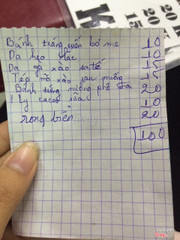 Bánh tráng cuốn bơ me 10
Da heo 10
Da gà xào sa tế 15
Tép mỡ xào rau muống 15
Bánh tráng nướng phô mai 20
1 ly cacao sữa 10
rong biển 20
100
20